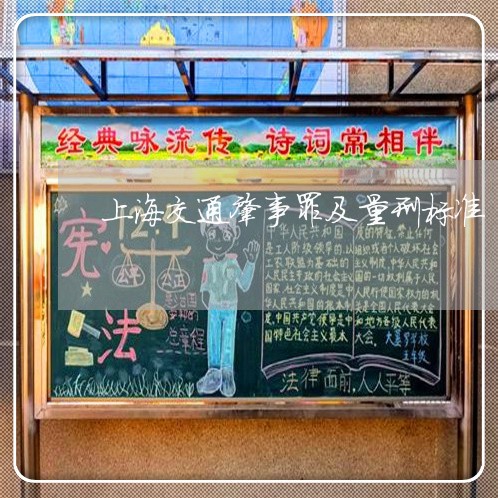 经典咏流传 诗词常相伴
上海交通肇事罪及量刑标准
宪法
公平 公正
总章程
中华人民共和国
是工人阶级领导的,以
工农联盟为基础的
人民民主专政的社会主义
国家,社会主义制度是中
华人民共和国的根本制
度,中国共产党领导是中
国特色社会主义最本
质的特征,禁止任何
组织或者个人破坏社会
主义制度,中华人民共和
国的一切权利属于人民,
人民行使国家权力的机
关是全国人民代表大会
和地方各级人民代表
大会。
五年级
法律面前,人人平等